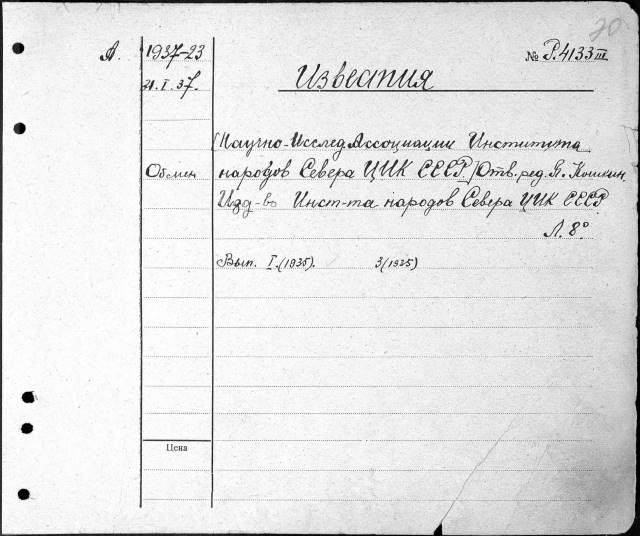 20
А. 1937-23 № Р.4133 III
21.I.37. Известия
[Научно-Исслед Ассоциации Института
Обмен народов Севера ЦИК СССР.] Отв. ред. Я. Кошкин.
Изд-во Инст-та народов Севера ЦИК СССР.
Л. 8°
Вып. I.(1935). 3(1935)
Цена